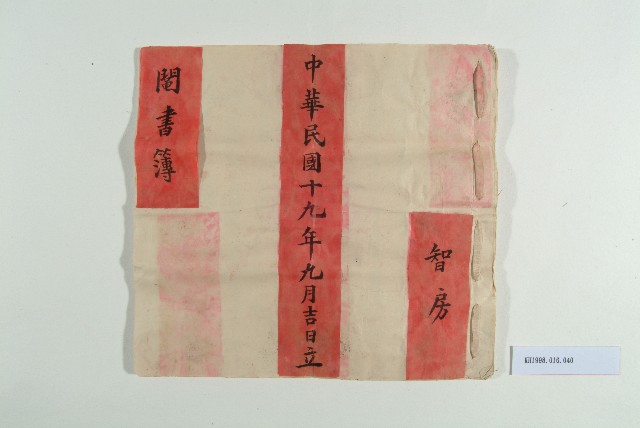 智房
中華民國十九年九月吉日立
鬮書簿
KH1998.010.040